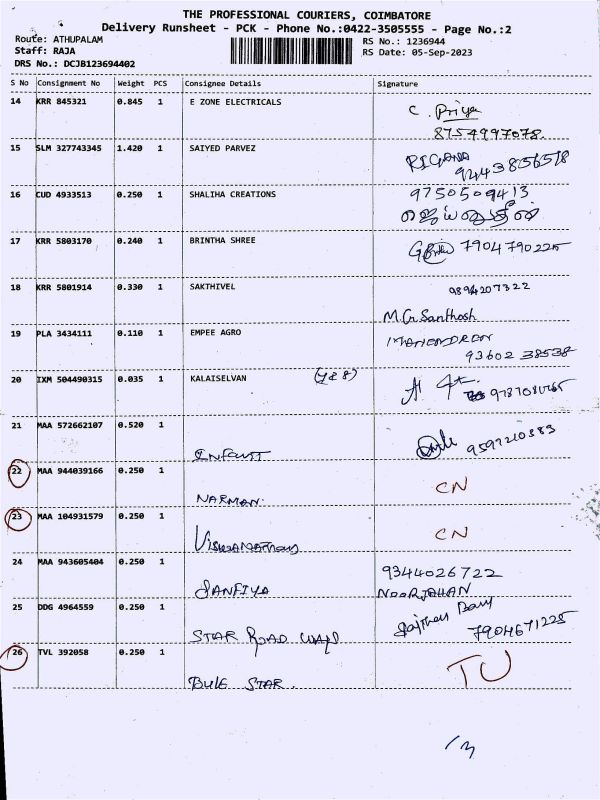 THE PROFESSIONAL COURIERS, COIMBATORE
Delivery Runsheet - PCK - Phone No.:0422-3505555 - Page No.:2
Route: ATHUPALAM
RS No.: 1236944
Staff: RAJA
RS Date: 05-Sep-2023
DRS No.: DCJB123694402
S No Consignment No Weight PCS Consignee Details Signature
14 KRR 845321 0.845 1 E ZONE ELECTRICALS C. Priya
8754997078.
15 SLM 327743345 1.420 1 SAIYED PARVEZ
9443856578
16 CUD 4933513 0.250 1 SHALIHA CREATIONS 9750509413
17 KRR 5803170 0.240 1 BRINTHA SHREE 7904790225
18 KRR 5801914 0.330 1 SAKTHIVEL 9894207322
M.G. Santhosh
19 PLA 3434111 0.110 1 EMPEE AGRO
93602 38538
20 IXM 504490315 0.035 1 KALAISELVAN
21 MAA 572662107 0.520 1
9597210383
INFANT
22 MAA 944039166 0.250 1 CN
NARMAN.
23 MAA 104931579 0.250 1 CN
24 MAA 943605404 0.250 1 9344026722
SANFIYA NOORJAHAN
25 DDG 4964559 0.250 1
7904671225
STAR ROAD
26 TVL 392058 0.250 1 TU
BULE STAR.
13